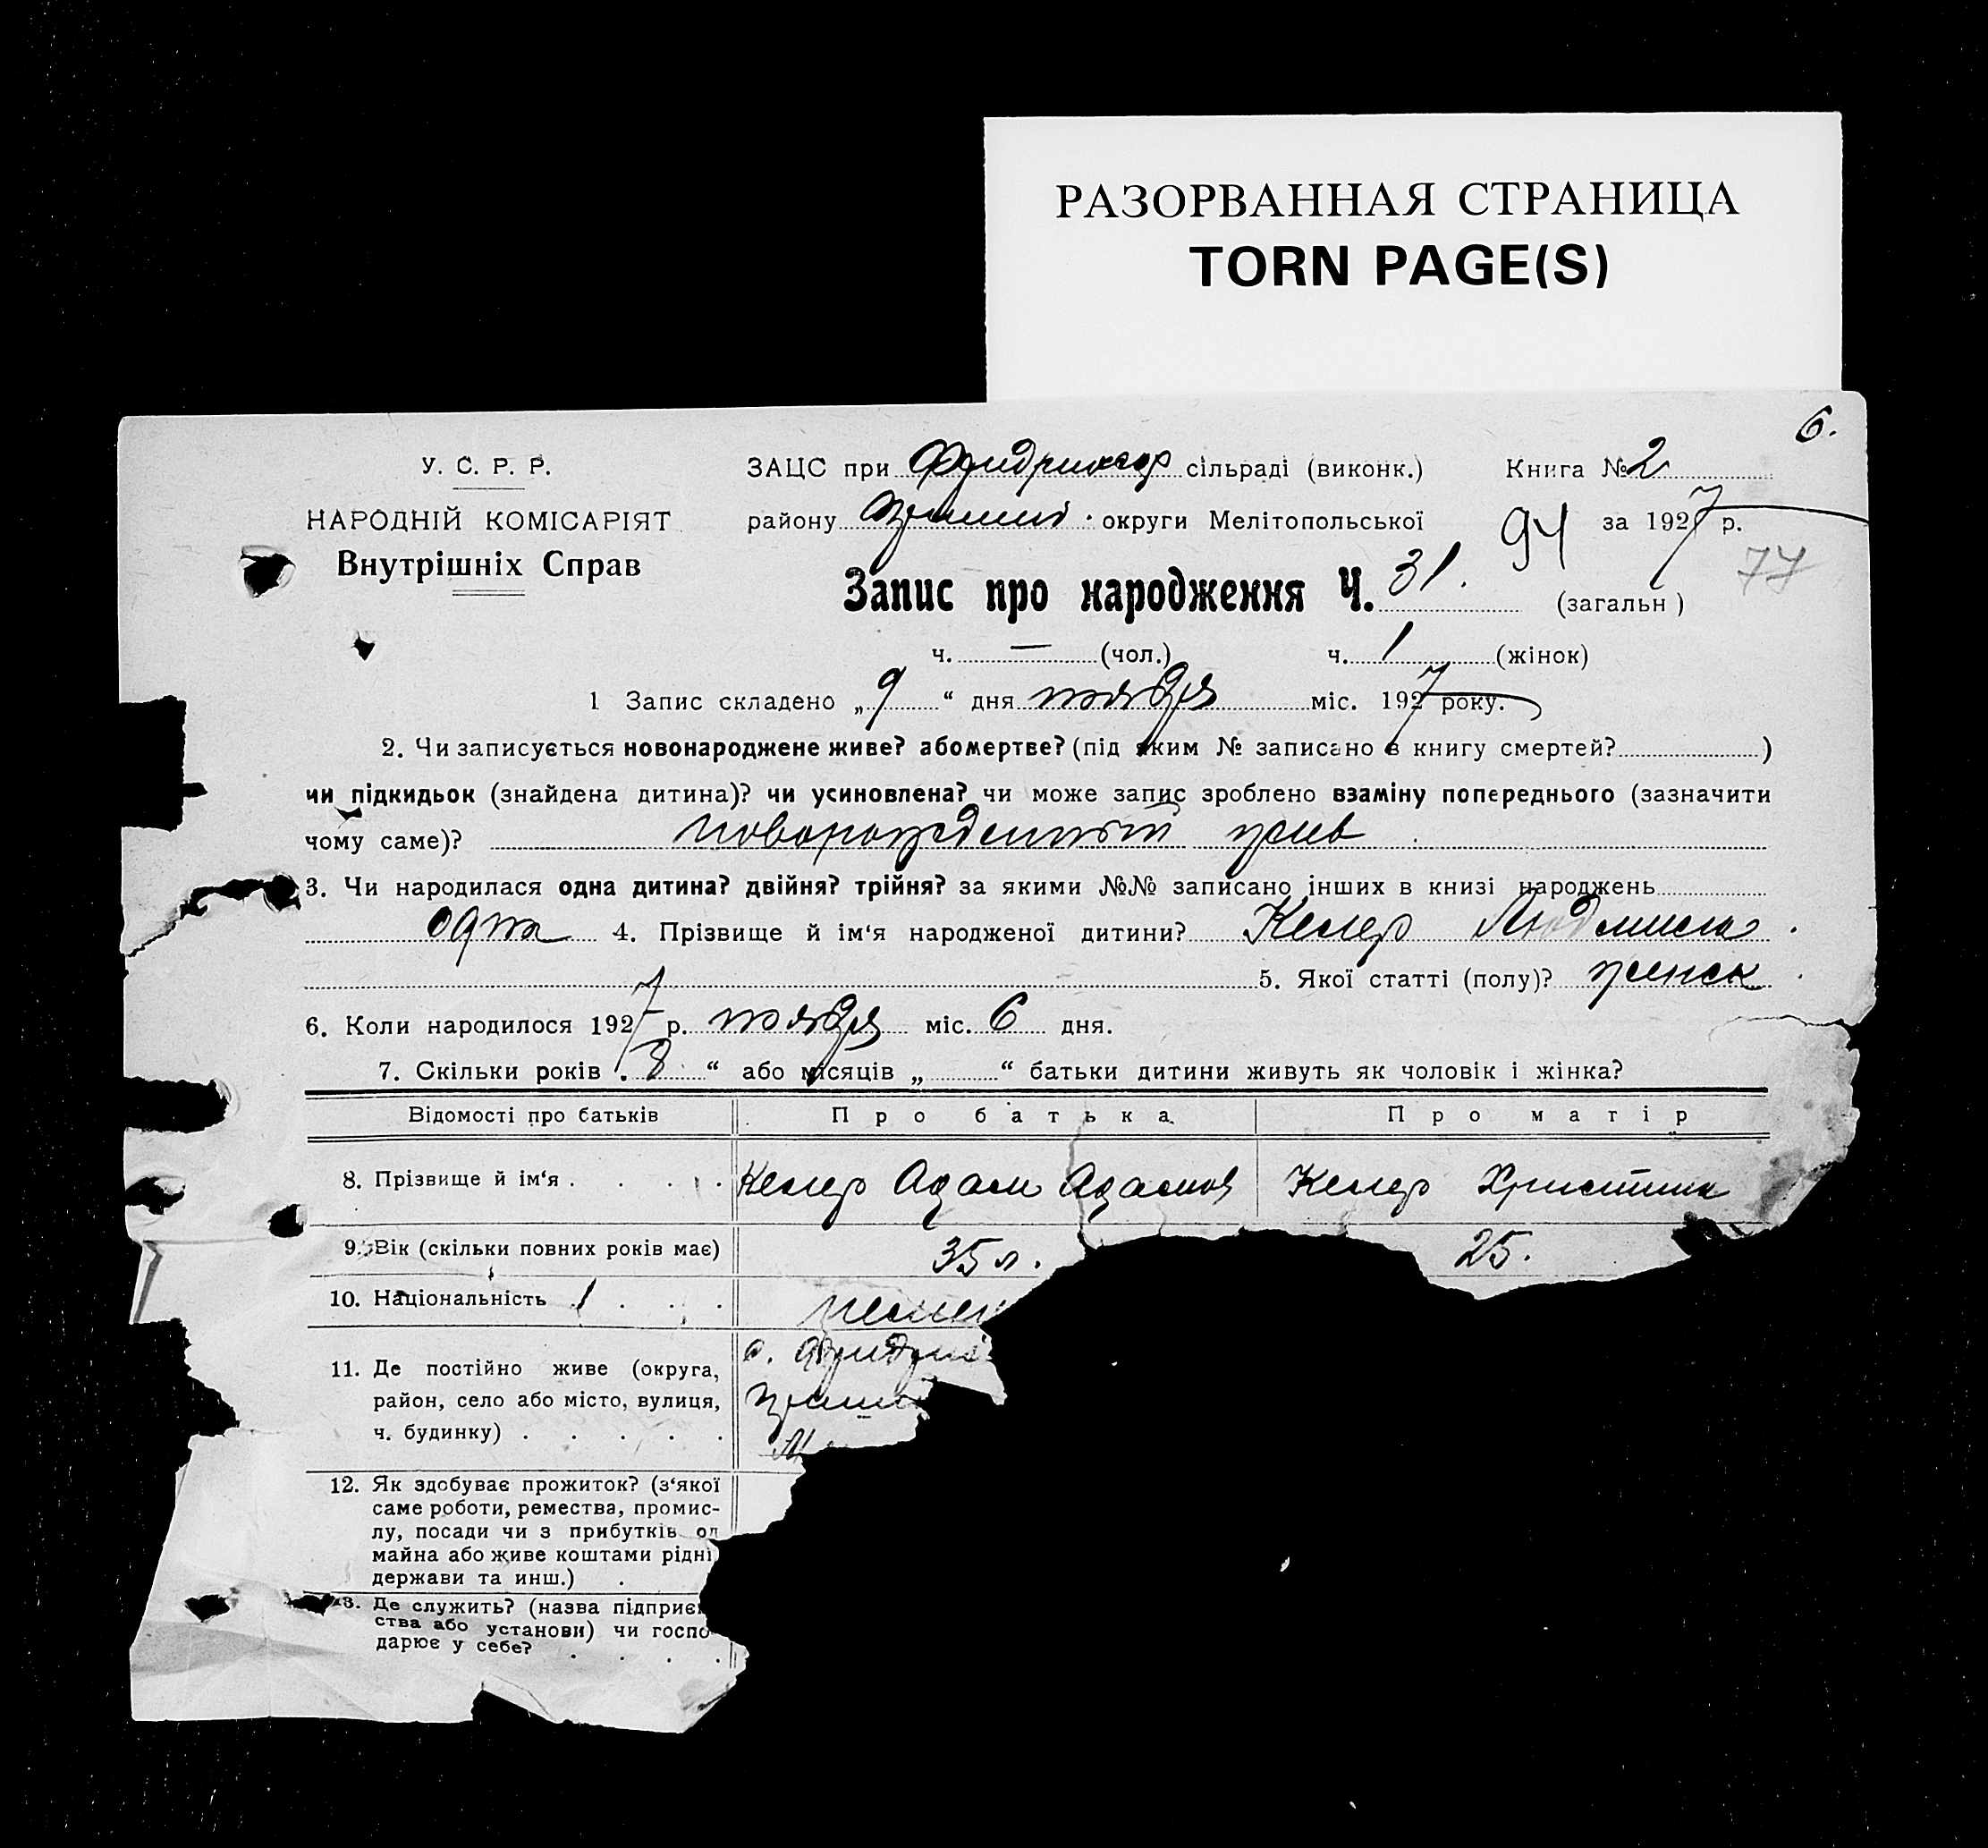 РАЗОРВАННАЯ СТРАНИЦА
TORN PAGE(S)
6.
У. С. Р. Р.
НАРОДНІЙ КОМІСАРІЯТ
Внутрішніх Справ
ЗАЦС при сільраді (виконк.)
Книга № 2
району округи Мелітопольської
94 за 1927 р.
77
Запис про народження Ч. 31. (загальн)
ч. — (чол.) ч. 1 (жінок)
1 Запис складено „9“ дня ноября міс. 1927 року.
2. Чи записується новонароджене живе? або мертве? (під яким № записано в книгу смертей? )
чи підкидьок (знайдена дитина)? чи усиновлена? чи може запис зроблено взаміну попереднього (зазначити
чому саме)? новорожденный жив
3. Чи народилася одна дитина? двійня? трійня? за якими №№ записано інших в книзі народжень
одна 4. Прізвище й ім'я народженої дитини? Келер Людмила
5. Якої статті (полу)? женск
6. Коли народилося 1927 р. ноября міс. 6 дня.
7. Скільки років „8“ або місяців „ “ батьки дитини живуть як чоловік і жінка?
Відомості про батьків Про батька Про матір
8. Прізвище й ім'я . . . . Келер Адам Адамов Келер Христина
9. Вік (скільки повних років має) 35 л. 25.
10. Національність . . . . немец
11. Де постійно живе (округа,
район, село або місто, вулиця,
ч. будинку) . . . . .
12. Як здобуває прожиток? (з'якої
саме роботи, ремества, промис-
лу, посади чи з прибутків од
майна або живе коштами рідні
держави та инш.) .
13. Де служить? (назва підприєм
ства або установи) чи госпо-
дарює у себе? . . . .